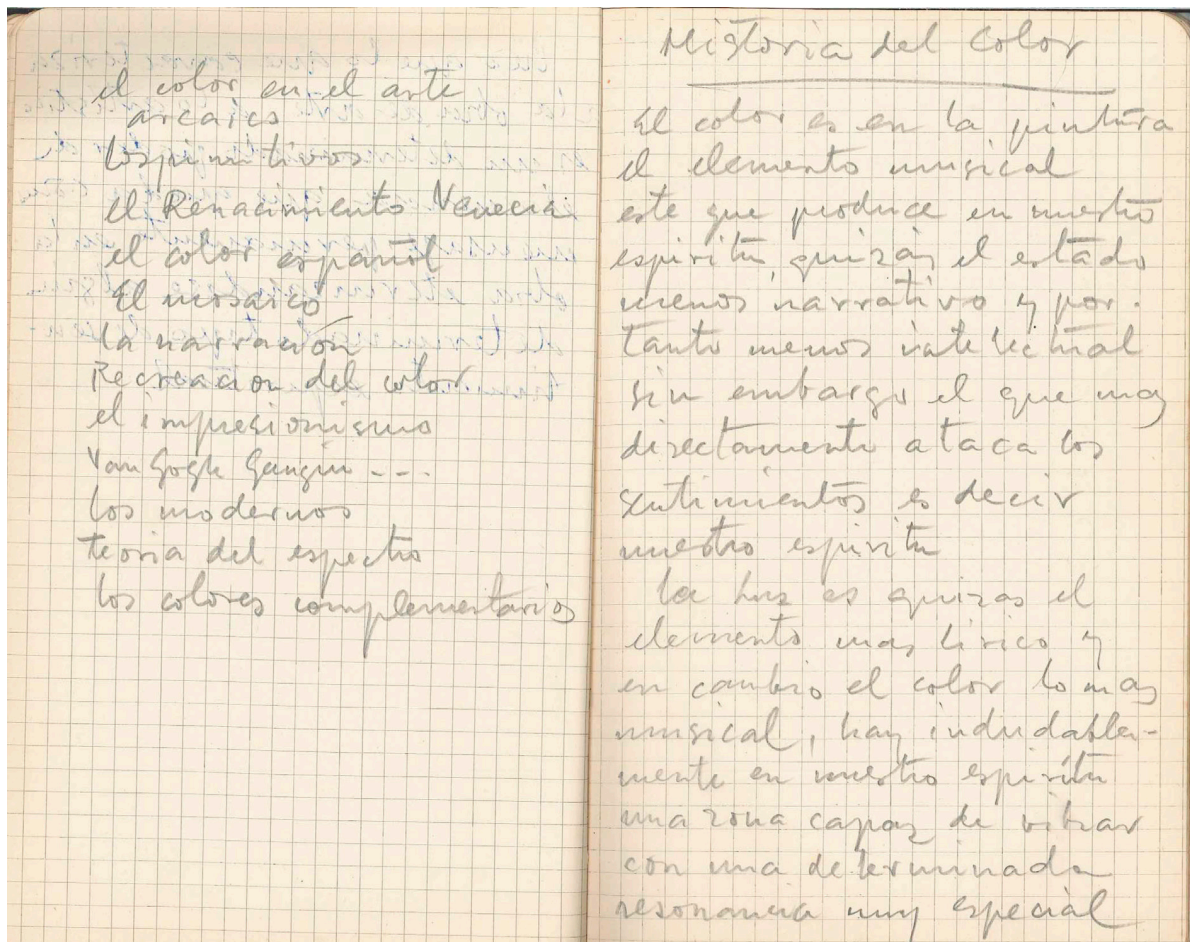 el color en el arte
arcaico
los primitivos
el Renacimiento Venecia
el color español
El mosaico
la narración
Recreacion del color
el impresionismo
Van Gogk Gaugin ---
los modernos
teoria del espectro
los colores complementarios
Historia del Color
El color es en la pintura
el elemento musical
este que produce en nuestro
espiritu, quizás el estado
menos narrativo y por
tanto menos intelectual
sin embargo el que mas
directamente ataca los
sentimientos es decir
nuestro espiritu
la luz es quizas el
elemento mas lirico y
en cambio el color lo mas
musical, hay indudable-
mente en nuestro espiritu
una zona capaz de vibrar
con una determinada
resonancia muy especial